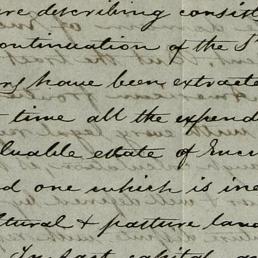 are describing consist
continuation of the S
have been extracte
time all the expend
valuable estate of Encr
d one which is ine
ltural & pasture lan
In fact capital